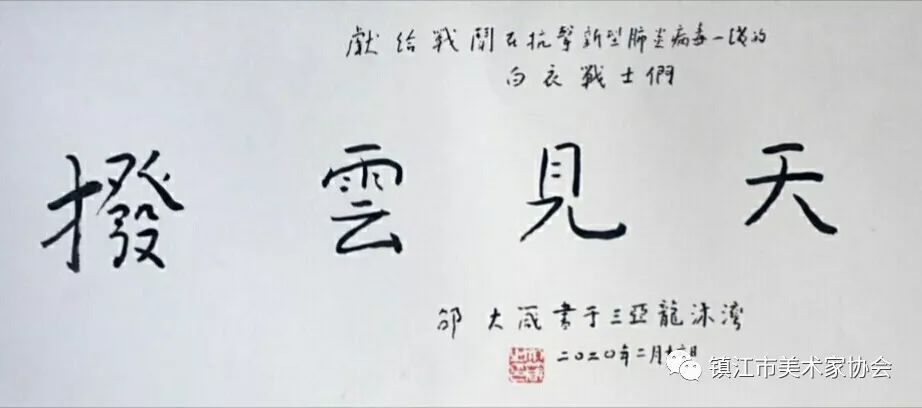 獻给戰鬪在抗擊新型肺炎病毒一线的
白衣戰士們
撥雲見天
邵大箴書于三亞龍沐灣
二〇二〇年二月
镇江市美术家协会